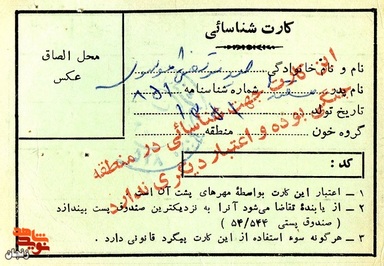 کارت شناسائی
محل الصاق
عکس
نام و نام خانوادگی
نام پدر شماره شناسنامه ۸۵۱
تاریخ تولد
گروه خون منطقه
این کارت جهت شناسائی در منطقه
جنگی بوده و اعتبار دیگری ندارد
کد :
۱ ـ اعتبار این کارت بواسطهٔ مهرهای پشت آن است .
۲ ـ از یابندهٔ تقاضا می‌شود آنرا به نزدیکترین صندوق پست بیندازد
( صندوق پستی ۵۴/۵۴۴ )
۳ ـ هرگونه سوء استفاده از این کارت پیگرد قانونی دارد .